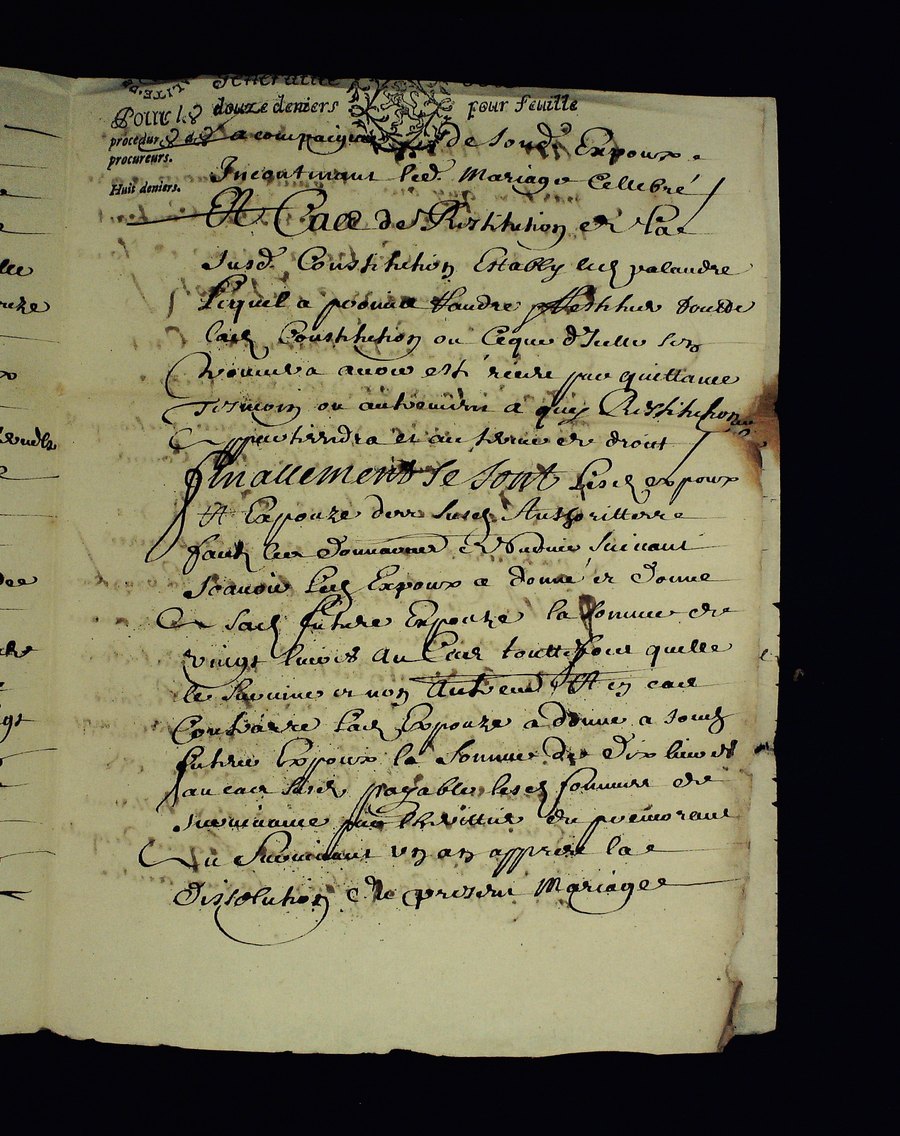 Generalité
Pour les douze deniers pour feuille
procedures des
procureurs.
Huit deniers.
acompaigner de sond. Expoux
Incontinant led. Mariage Cellebré
Et Cas de Restitution de la
susd. Constitution Estably led palandre
Lequel a promis Randre & Restituer toutte
lad Constitution ou Ceque d'Icelle sera
trouvera avoir esté receue par quittance
tesmoin ou autrement a quy Restitution
appartiendra et au terme de droit
finallement se sont Lesd expoux
Et Expouze de susd Authoritté
faite les donnations de survie suivant
Scavoir led Expoux a donné et donne
a sad future Expouze la somme de
vingt livres au Cas touttesfois quelle
le survive et non autrement Et en cas
Contraire lad Expouze a donne a soud
futeur Expoux la somme de dix livres
au cas susd payable lesd sommes de
survivance par l'heritier du premorant
au survivant un an appres la
dissolution du present Mariage